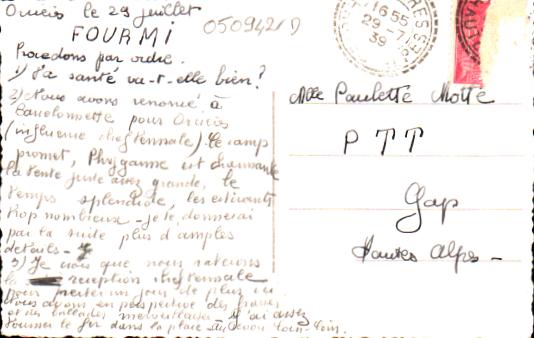 Orcières le 29 juillet
050942/D
FOURMI
Procédons par ordre.
1) Ta santé va-t-elle bien?
2) Nous avons renoncé à
pour Orcières
(influence cheftennale). Le camp
promet, Phrygane est charmante
la tente juste assez grande, le
temps splendide, les estivants
trop nombreux - je te donnerai
par la suite plus d'amples
détails -
3) Je crois que nous
la réception cheftennale
pour un jour de plus ici
Nous avons en perspective des
et des ballades merveilleuses. J'ai assez
dans la place
16 55
29 - 7
39
Mlle Paulette Motte
P T T
Gap
Hautes Alpes -